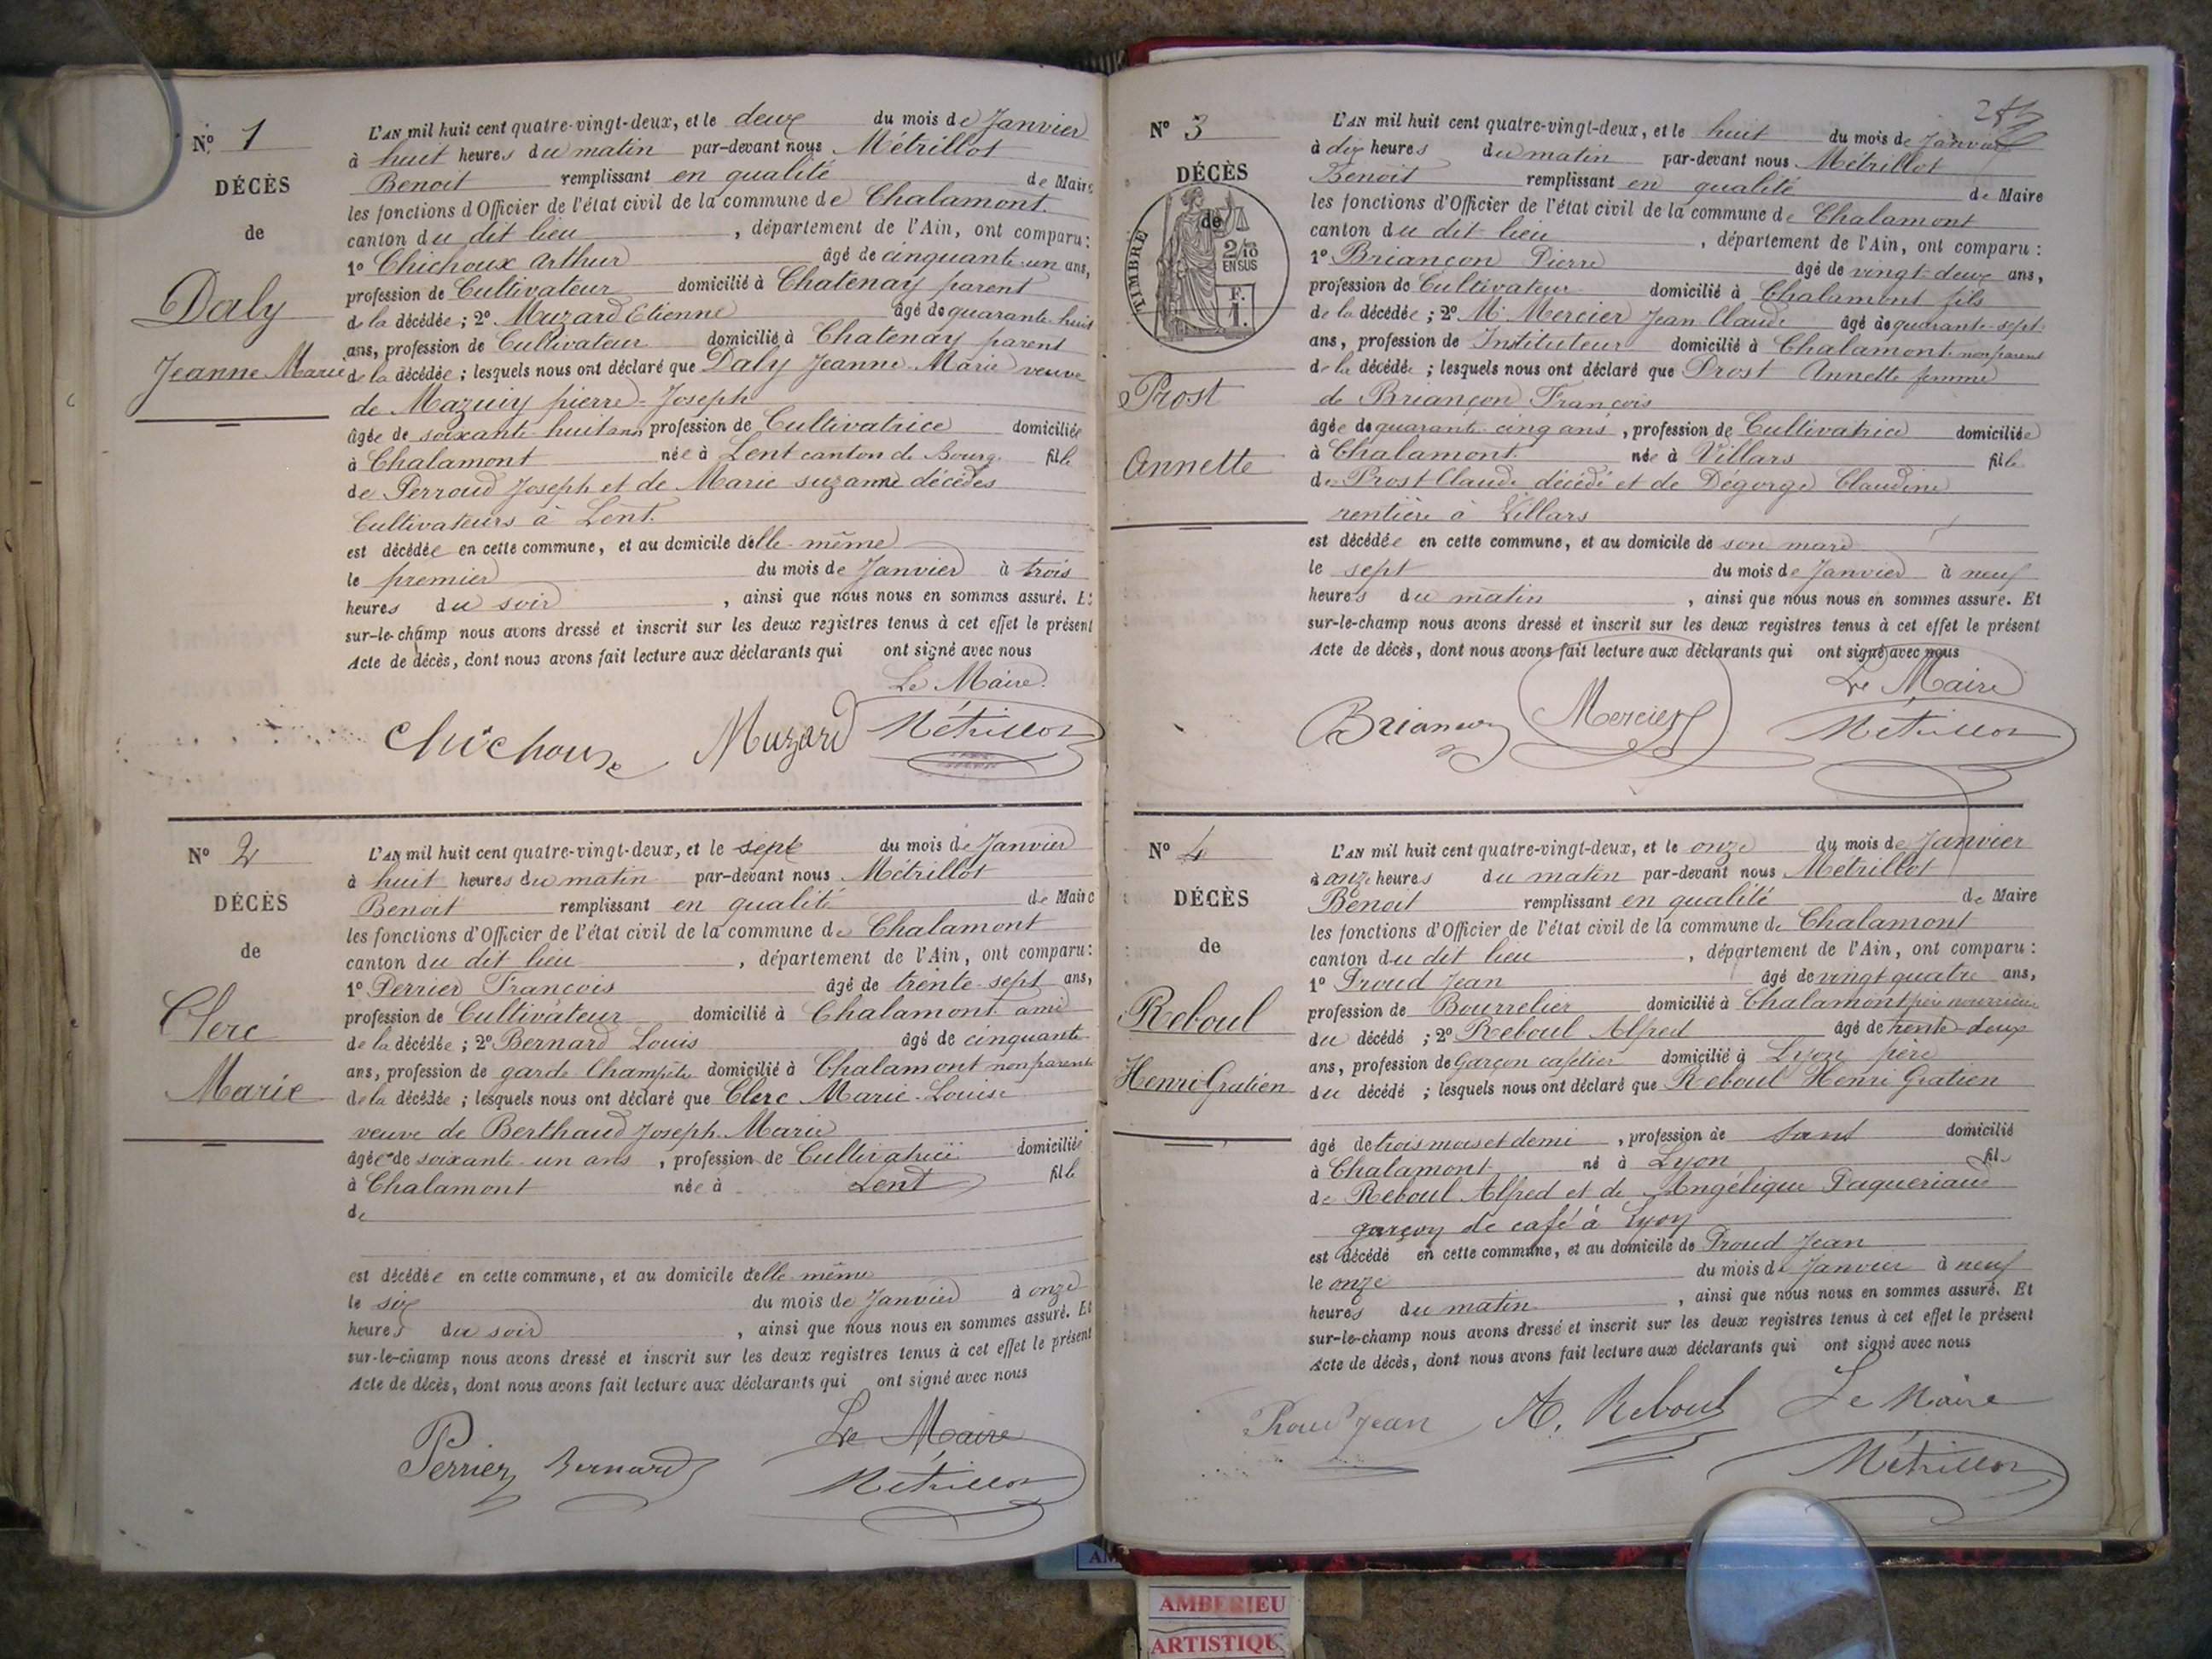 Nº 1
DÉCÈS
de
Daly
Jeanne Marie
L'AN mil huit cent quatre-vingt-deux, et le deux du mois de Janvier
à huit heures du matin par-devant nous Métrillot
Benoit remplissant en qualité de Maire
les fonctions d'Officier de l'état civil de la commune de Chalamont
canton du dit lieu, département de l'Ain, ont comparu:
1º Chichoux Arthur âgé de cinquante-un ans,
profession de Cultivateur domicilié à Chatenay parent
de la décédée; 2º Muzard Etienne âgé de quarante-huit
ans, profession de Cultivateur domicilié à Chatenay parent
de la décédée; lesquels nous ont déclaré que Daly Jeanne Marie veuve
de Mazuiy pierre-Joseph
âgée de soixante-huit ans, profession de Cultivatrice domiciliée
à Chalamont née à Lent canton de Bourg fille
de Perroud Joseph et de Marie suzanne décédés
Cultivateurs à Lent.
est décédée en cette commune, et au domicile d'elle-même
le premier du mois de Janvier à trois
heures du soir, ainsi que nous nous en sommes assuré. Et
sur-le-champ nous avons dressé et inscrit sur les deux registres tenus à cet effet le présent
Acte de décès, dont nous avons fait lecture aux déclarants qui ont signé avec nous
Le Maire
Chichoux Muzard Métrillot
Nº 2
DÉCÈS
de
Clerc
Marie
L'AN mil huit cent quatre-vingt-deux, et le sept du mois de Janvier
à huit heures du matin par-devant nous Métrillot
Benoit remplissant en qualité de Maire
les fonctions d'Officier de l'état civil de la commune de Chalamont
canton du dit lieu, département de l'Ain, ont comparu:
1º Perrier François âgé de trente-sept ans,
profession de Cultivateur domicilié à Chalamont ami
de la décédée; 2º Bernard Louis âgé de cinquante
ans, profession de garde-Champêtre domicilié à Chalamont non parent
de la décédée; lesquels nous ont déclaré que Clerc Marie-Louise
veuve de Berthaud Joseph-Marie
âgée de soixante-un ans, profession de Cultivatrice domiciliée
à Chalamont née à Lent fille
de
est décédée en cette commune, et au domicile d'elle-même
le six du mois de Janvier à onze
heures du soir, ainsi que nous nous en sommes assuré. Et
sur-le-champ nous avons dressé et inscrit sur les deux registres tenus à cet effet le présent
Acte de décès, dont nous avons fait lecture aux déclarants qui ont signé avec nous
Le Maire
Perrier Bernard Métrillot
Nº 3
DÉCÈS
de
TIMBRE
2/10
EN SUS
F.
1.
Prost
Annette
L'AN mil huit cent quatre-vingt-deux, et le huit du mois de Janvier
à dix heures du matin par-devant nous Métrillot
Benoit remplissant en qualité de Maire
les fonctions d'Officier de l'état civil de la commune de Chalamont
canton du dit lieu, département de l'Ain, ont comparu:
1º Briançon Pierre âgé de vingt-deux ans,
profession de Cultivateur domicilié à Chalamont fils
de la décédée; 2º Mr Mercier Jean Claude âgé de quarante-sept
ans, profession de Instituteur domicilié à Chalamont non parent
de la décédée; lesquels nous ont déclaré que Prost Annette femme
de Briançon François
âgée de quarante-cinq ans, profession de Cultivatrice domiciliée
à Chalamont née à Villars fille
de Prost Claude décédé et de Dégorge Claudine
rentière à Villars
est décédée en cette commune, et au domicile de son mari
le sept du mois de Janvier à neuf
heures du matin, ainsi que nous nous en sommes assuré. Et
sur-le-champ nous avons dressé et inscrit sur les deux registres tenus à cet effet le présent
Acte de décès, dont nous avons fait lecture aux déclarants qui ont signé avec nous
Le Maire
Briançon Mercier Métrillot
Nº 4
DÉCÈS
de
Reboul
Henri Gratien
L'AN mil huit cent quatre-vingt-deux, et le onze du mois de Janvier
à onze heures du matin par-devant nous Métrillot
Benoit remplissant en qualité de Maire
les fonctions d'Officier de l'état civil de la commune de Chalamont
canton du dit lieu, département de l'Ain, ont comparu:
1º Proud Jean âgé de vingt quatre ans,
profession de Bourrelier domicilié à Chalamont père nourricier
du décédé; 2º Reboul Alfred âgé de trente-deux
ans, profession de Garçon cafetier domicilié à Lyon père
du décédé; lesquels nous ont déclaré que Reboul Henri Gratien
âgé de trois mois et demi, profession de Sans domicilié
à Chalamont né à Lyon fils
de Reboul Alfred et de Angélique Paqueriaud
garçon de café à Lyon
est décédé en cette commune, et au domicile de Proud Jean
le onze du mois de Janvier à neuf
heures du matin, ainsi que nous nous en sommes assuré. Et
sur-le-champ nous avons dressé et inscrit sur les deux registres tenus à cet effet le présent
Acte de décès, dont nous avons fait lecture aux déclarants qui ont signé avec nous
Proud Jean A. Reboul Le Maire
Métrillot
AMBERIEU
ARTISTIQU